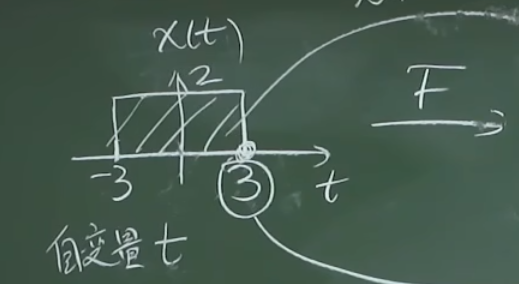 x(t)
2
F
-3
3
t
自变量 t